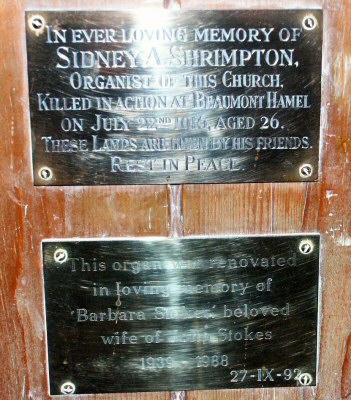 IN EVER LOVING MEMORY OF
SIDNEY A. SHRIMPTON,
ORGANIST OF THIS CHURCH,
KILLED IN ACTION AT BEAUMONT HAMEL
ON JULY 22ND 1916, AGED 26.
THESE LAMPS ARE GIVEN BY HIS FRIENDS.
REST IN PEACE.
This organ was renovated
in loving memory of
Barbara Stokes, beloved
wife of John Stokes
1939 - 1988
27-IX-92